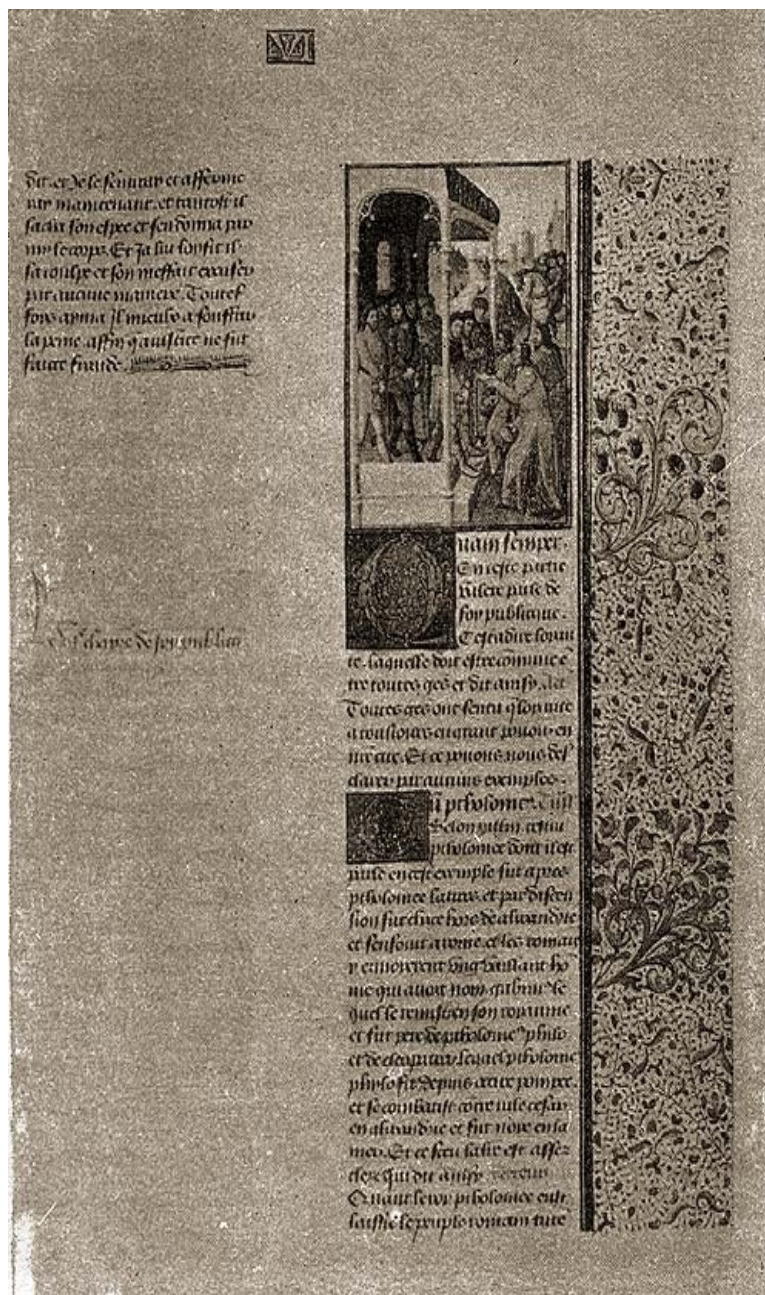 VI
dit. et Je le
maintenant. et tantost il
sacha son espee et sen donna par
my le corps. Et Ja
sa coulpe et son meffait excuser
par aucune maniere. Toutef
fois ayma Il mieulx a souffrir
la peine affin q̄ Justice ne fut
faicte fraude.
chapitre de foy publicque
uam semper.
En ceste partie
valere parle de
foy publicque.
Cest adire loyau
te. laquelle doit estre cōmune ē
tre toutes gēs et dit ainsy.
Toutes gēs ont sentu
a tousiours en grant en
nr̄e cite. Et ce pouons nous des
clairer par aucuns exemples.
ū ptholomee
Selon
ptholomee dont il est
parle en cest exemple fut apres
ptholomee et par dissen
sion fut chace hors de alixandrie
et sen fouit a rome. et les romais
y enuoierent vng vaillant ho
me qui auoit nom le
quel le remist en son royaume
et fut pere de ptholomee philo
et de cleopatre. lequel ptholomee
philo fit depuis pompee.
et se combatist cōtre iule cesar
en alixandrie et fut noye en la
mer. Et ce la lr̄e est assez
clere qui dit ainsy
Quant le roy ptholomee eust
laissie le peuple romain